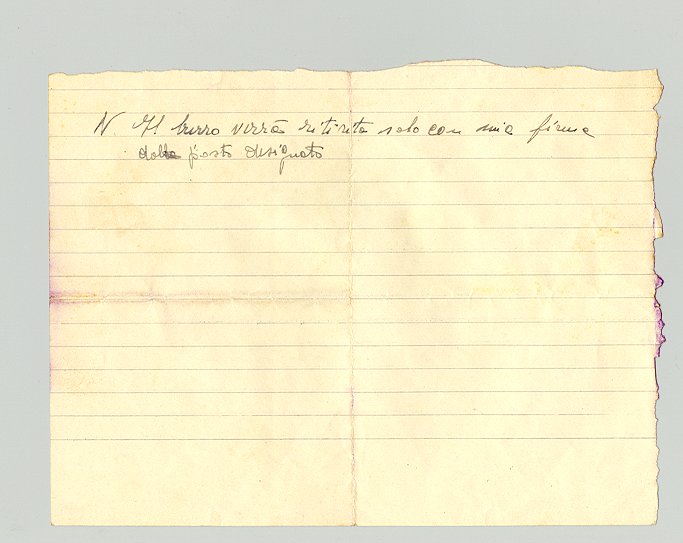 N. Il burro verrà ritirato solo con mia firma
dal posto designato